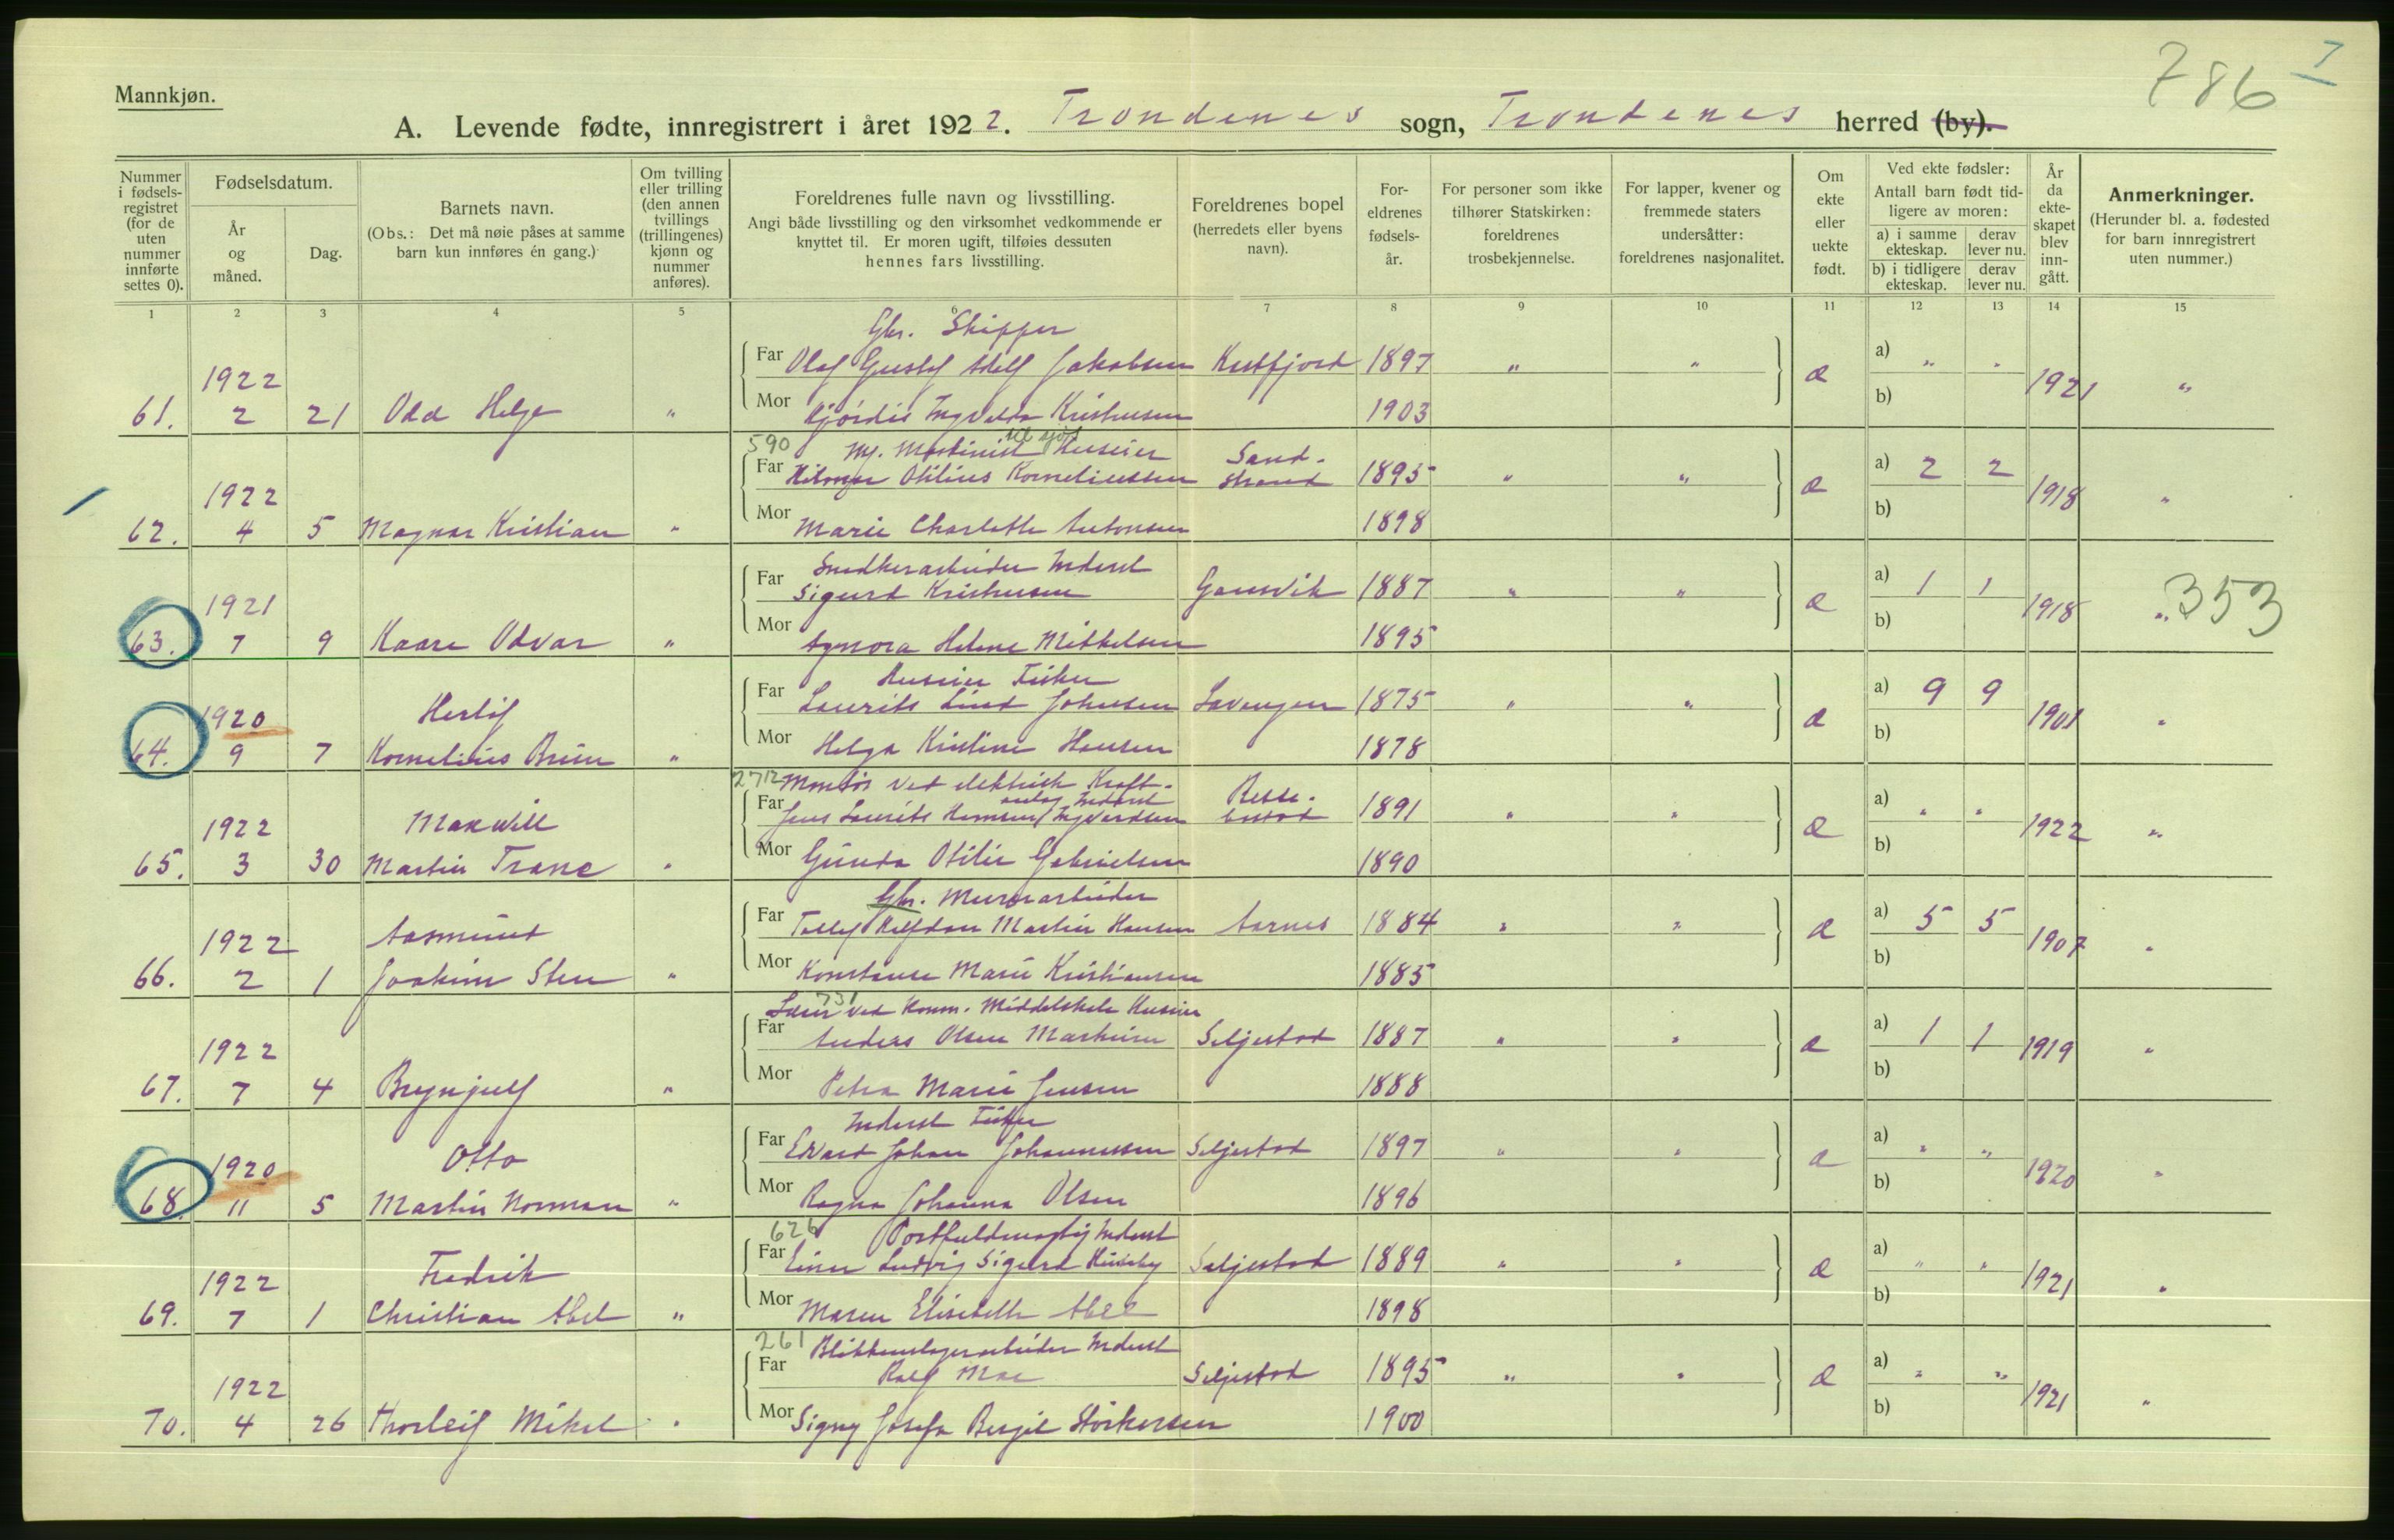 786 7
Mannkjøn.
A. Levende fødte, innregistrert i året 1922. Trondenes sogn, Trondenes herred (by).
Nummer i fødsels-registret (for de uten nummer innførte settes 0).
Fødselsdatum.
År og måned.
Dag.
Barnets navn.
(Obs.: Det må nøie påses at samme barn kun innføres én gang.)
Om tvilling eller trilling (den annen tvillings (trillingenes) kjønn og nummer anføres).
Foreldrenes fulle navn og livsstilling.
Angi både livsstilling og den virksomhet vedkommende er knyttet til. Er moren ugift, tilføies dessuten hennes fars livsstilling.
Foreldrenes bopel (herredets eller byens navn).
For-eldrenes fødsels-år.
For personer som ikke tilhører Statskirken: foreldrenes trosbekjennelse.
For lapper, kvener og fremmede staters undersåtter: foreldrenes nasjonalitet.
Om ekte eller uekte født.
Ved ekte fødsler:
Antall barn født tid-ligere av moren:
a) i samme ekteskap. derav lever nu.
b) i tidligere ekteskap. derav lever nu.
År da ekte-skapet blev inn-gått.
Anmerkninger.
(Herunder bl. a. fødested for barn innregistrert uten nummer.)
1 2 3 4 5 6 7 8 9 10 11 12 13 14 15
Gbr. Skipper
Far Olaf Gustaf Adolf Jakobsen Kasfjord 1897 " " a) " "
1922 æ 1921 "
61. 2 21 Odd Helge " Mor Hjørdis Ingvalda Kristensen 1903 b)
590 Maskinist til sjøs Huseier Sand-
Far Hilmar Otilius Korneliussen strand 1895 " " a) 2 2
1922 æ 1918 "
62. 4 5 Magnar Kristian " Mor Marie Charlotte Antonsen 1898 b)
Snedkerarbeider Inderst
Far Sigurd Kristensen Gansvik 1887 " " a) 1 1
1921 æ 1918 " 353
63. 7 9 Kaare Odvar " Mor Agnora Helene Mikkelsen 1895 b)
Huseier Fisker
Far Laurits Lind Johnsen Lavangen 1875 " " a) 9 9
1920 Herlöf æ 1901 "
64. 9 7 Kornelius Brun " Mor Helga Kristine Hansen 1878 b)
2712 Montør ved elektrisk Kraft-
anlæg Inderst
Far Jens Laurits Hemsen Ingvardsen 1891 " " a) " "
1922 Maxwill æ 1922 "
65. 3 30 Martin Trane " Mor Gunda Otilie Gabrielsen 1890 b)
Gbr. Murerarbeider
Far Tollef Halfdan Martin Hansen Aarnes 1884 " " a) 5 5
1922 Aasmund æ 1907 "
66. 2 1 Joakim Sten " Mor Konstanse Marie Kristiansen 1885 b)
731
Lærer ved Komm. Middelskole Huseier
Far Anders Olsen Markussen Seljestad 1887 " " a) 1 1
1922 æ 1919 "
67. 7 4 Brynjulf " Mor Petra Marie Jensen 1888 b)
Inderst Fisker
Far Edvard Johan Johannessen Seljestad 1897 " " a) " "
1920 Otto æ 1920 "
68. 11 5 Martin Norman " Mor Ragna Johanna Olsen 1896 b)
626 Postfuldmægtig Inderst
Far Einar Ludvig Sigurd Huseby Seljestad 1889 " " a) " "
1922 Fredrik æ 1921 "
69. 7 1 Christian Abel " Mor Maren Elisabeth Abel 1898 b)
261 Blikkenslagerarbeider Inderst
Far Rolf Moe Seljestad 1895 " " a) " "
1922 æ 1921 "
70. 4 26 Thorleif Mikal " Mor Signy Josefa Bergit Storkersen 1900 b)